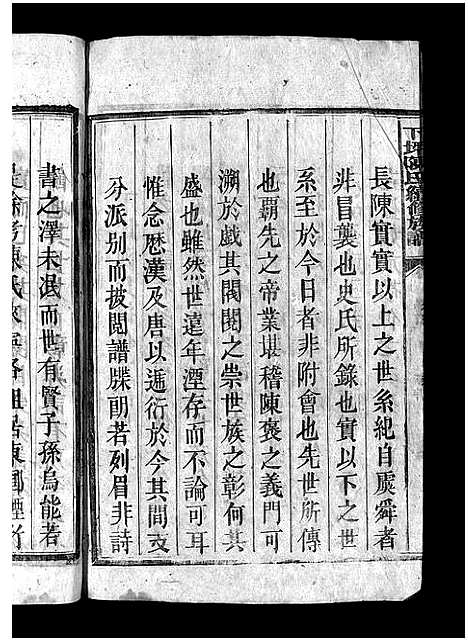 長陳實實以上之世系紀自虞舜者
非冒襲也史氏所錄也實以下之世
系至於今日者非附會也先世所傳
也霸先之帝業堪稽陳褒之義門可
溯於戲其閥閱之崇世族之彰何其
盛也雖然世遠年湮存而不論可耳
惟念歴漢及唐以遞衍於今其間支
分派別而披閱譜牒朗若列眉非詩
書之澤未泯而世有賢子孫烏能若
是